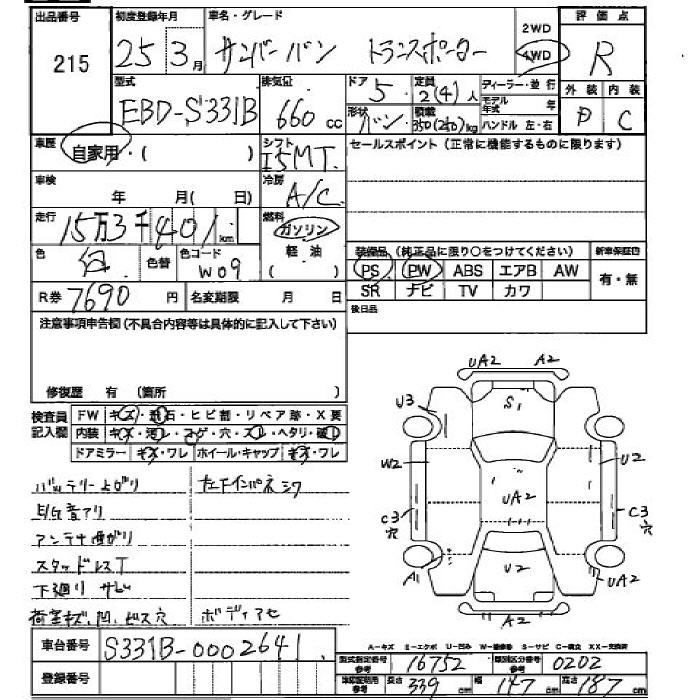 出品番号 初度登録年月 車名・グレード 評価点
215 25 3月 サンバーバン トランスポーター 2WD 4WD R
型式 排気量 ドア 定員 ディーラー・並行 外装 内装
EBD-S331B 660cc 5 2(4)人 モデル年式 年
形状 バン 積載 350(250)kg ハンドル 左・右 D C
車歴 自家用・( ) シフト I5MT. セールスポイント(正常に機能するものに限ります)
車検 年 月(日) 冷房 A/C
走行 15万3千401km 燃料 ガソリン 軽油 ( )
色 白 色替 色コード W09
装備品(純正品に限り○をつけてください) 新車保証書
PS PW ABS エアB AW 有・無
SR ナビ TV カワ
R券 7690円 名変期限 月 日
後日品
注意事項申告欄(不具合内容等は具体的に記入して下さい)
修復歴 有 (箇所 )
検査員記入欄 FW キズ・飛石・ヒビ割・リペア跡・X要
内装 キズ・汚レ・コゲ・穴・スレ・ヘタリ・破レ
ドアミラー キズ・ワレ ホイール・キャップ キズ・ワレ
バッテリー上がり 左下インパネシワ
E/G音アリ
アンテナ曲がり
スタッドレスT
下廻りサビ
荷室キズ.凹.ビス穴 ボディアセ
UA2 A2
U3 S1
W2 U2
UA2
C3穴 C3穴
A1 U2 UA2
A2
車台番号 S331B-0002641
登録番号
A-キズ E-エクボ U-凹み W-補修跡 S-サビ C-腐食 XX-交換済
型式指定番号 参考 16752 類別区分番号 参考 0202
車検証記載 参考 長さ 339cm 幅 147cm 高さ 187cm